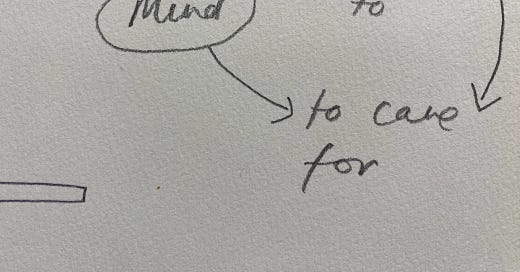 Mind to
to care
for